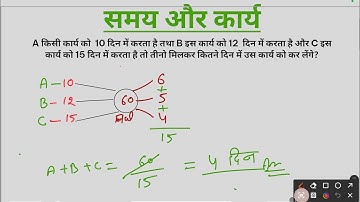 समय और कार्य
A किसी कार्य को 10 दिन में करता है तथा B इस कार्य को 12 दिन में करता है और C इस
कार्य को 15 दिन में करता है तो तीनो मिलकर कितने दिन में उस कार्य को कर लेंगे?
A – 10 6
+
B – 12 60 5
+
C – 15 4
15
A + B + C = 60/15 = 4 दिन